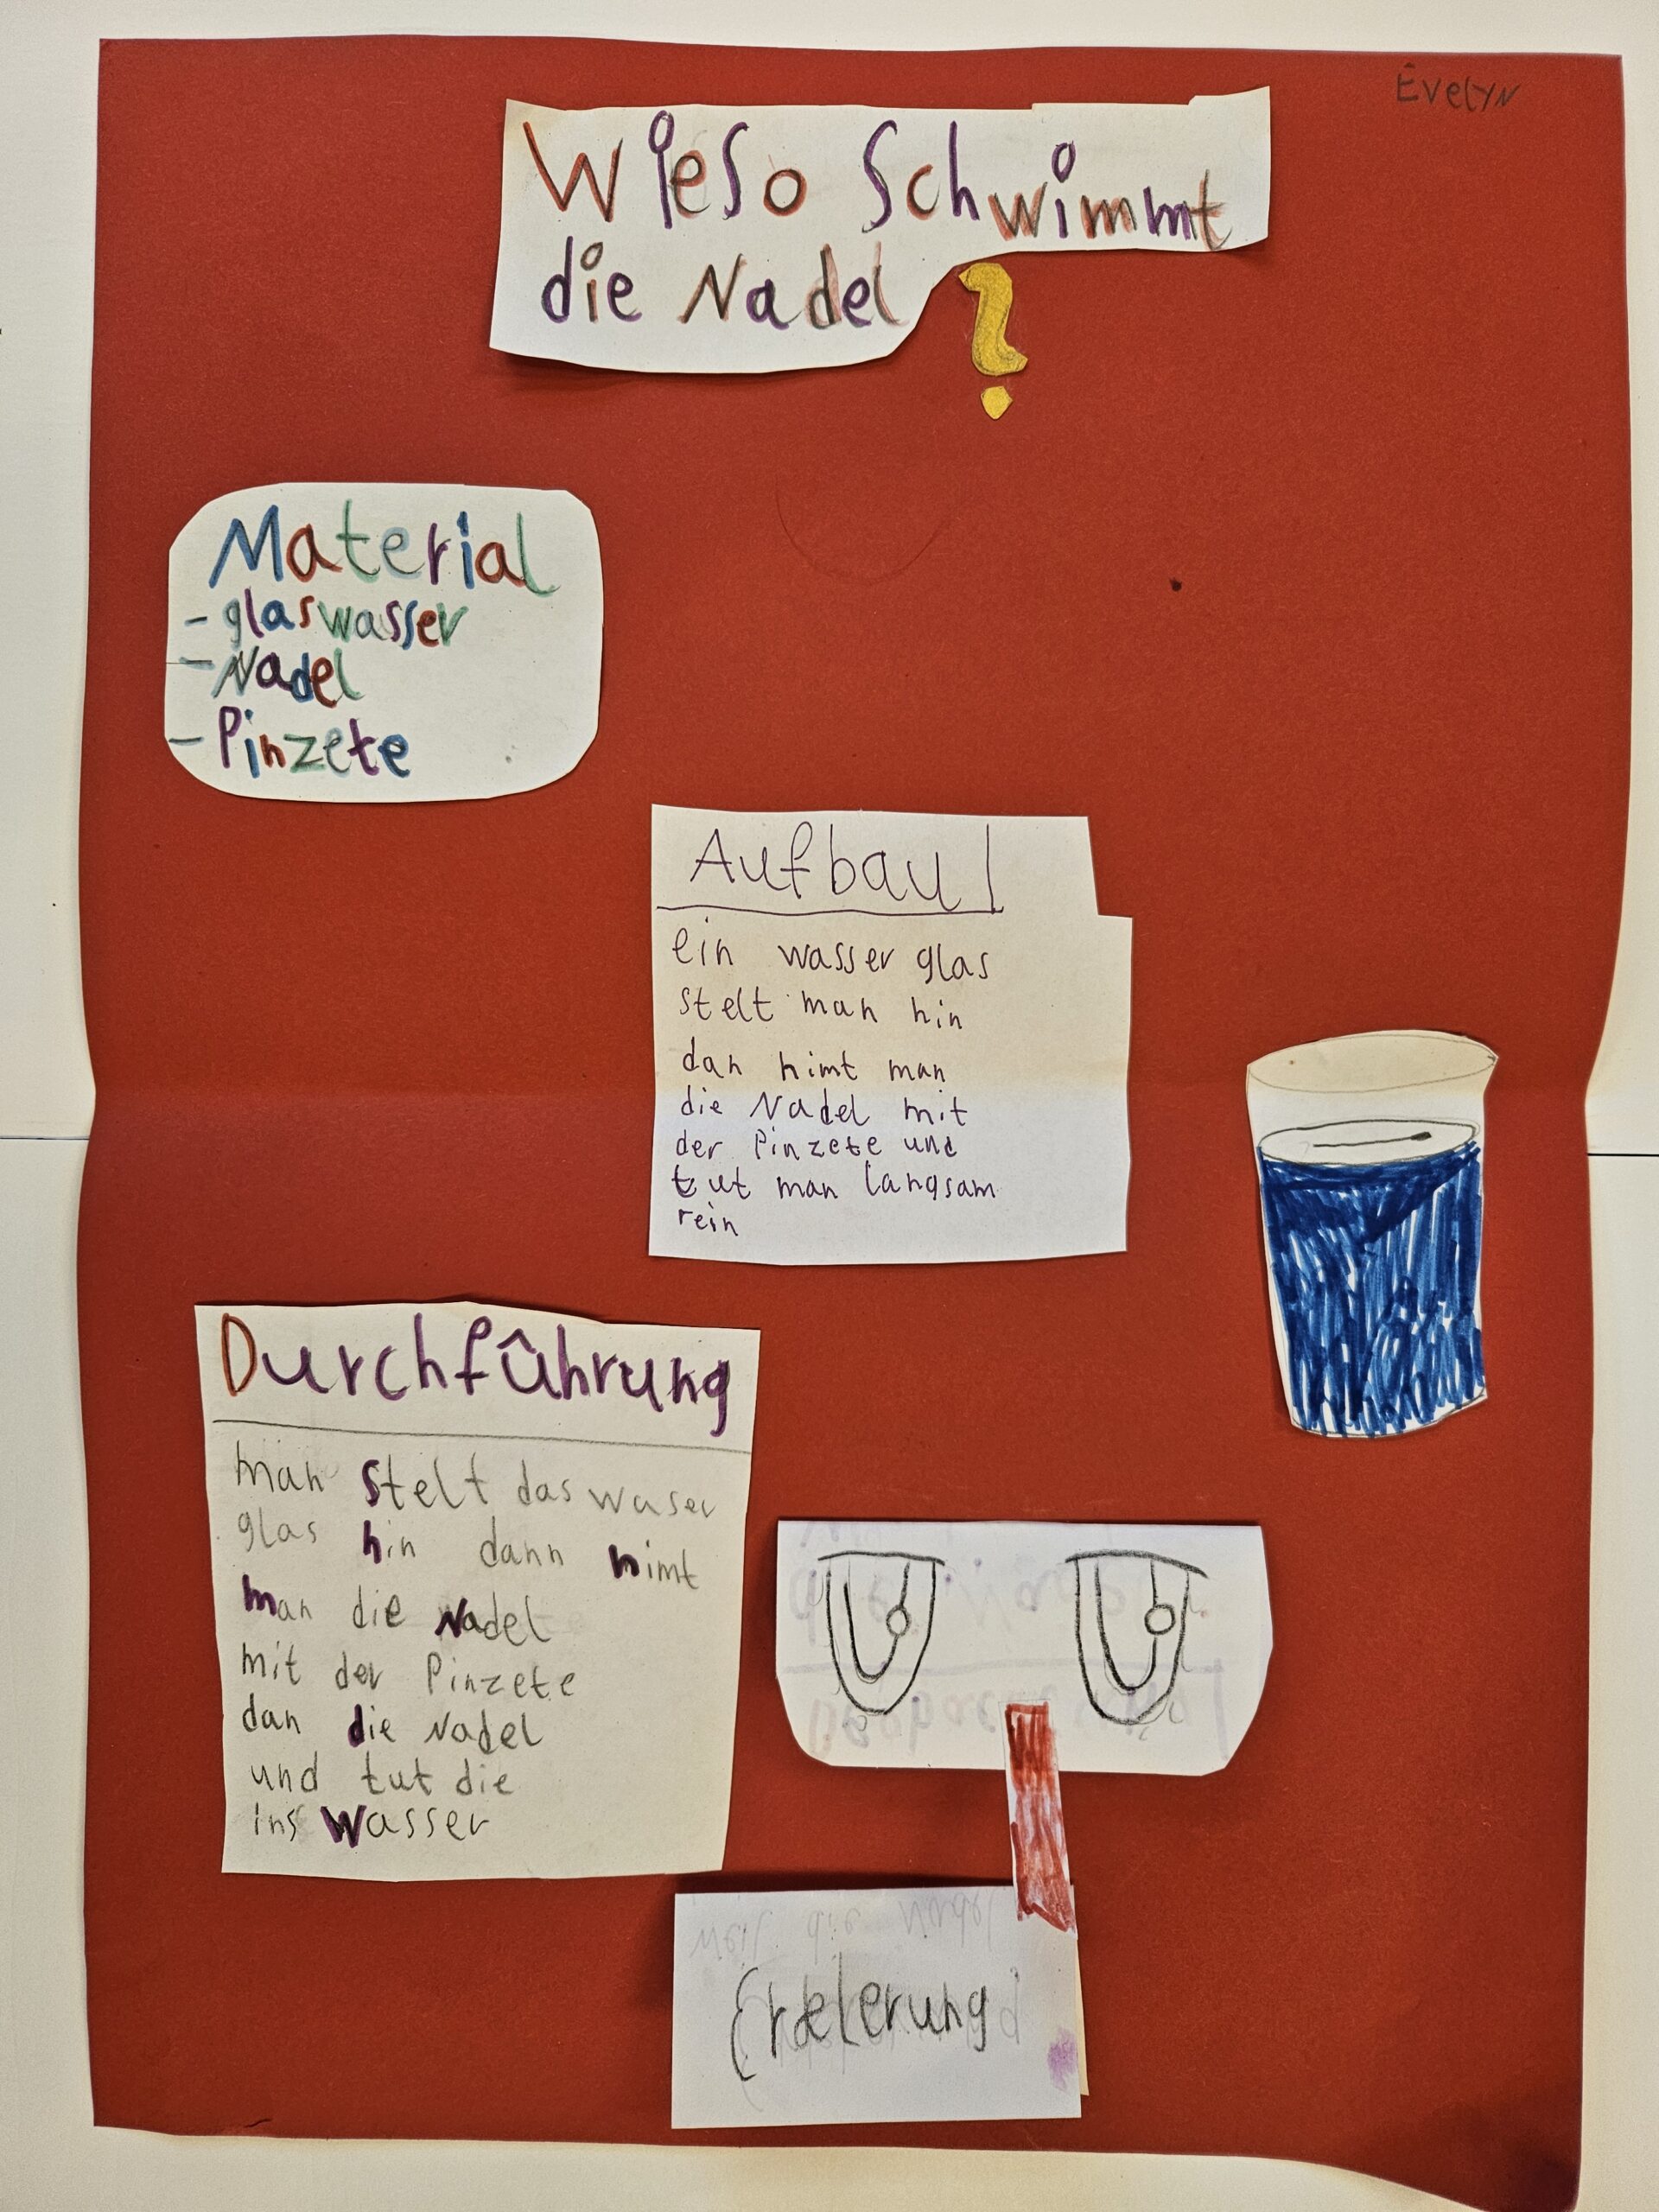 Evelyn
Wieso schwimmt
die Nadel?
Material
- glaswasser
- Nadel
- Pinzete
Aufbau
ein wasser glas
stelt man hin
dan nimt man
die Nadel mit
der Pinzete und
tut man langsam
rein
Durchführung
man stelt das waser
glas hin dann nimt
man die Nadel
mit der Pinzete
dan die Nadel
und tut die
ins Wasser
weil die Nadel
Erklerung